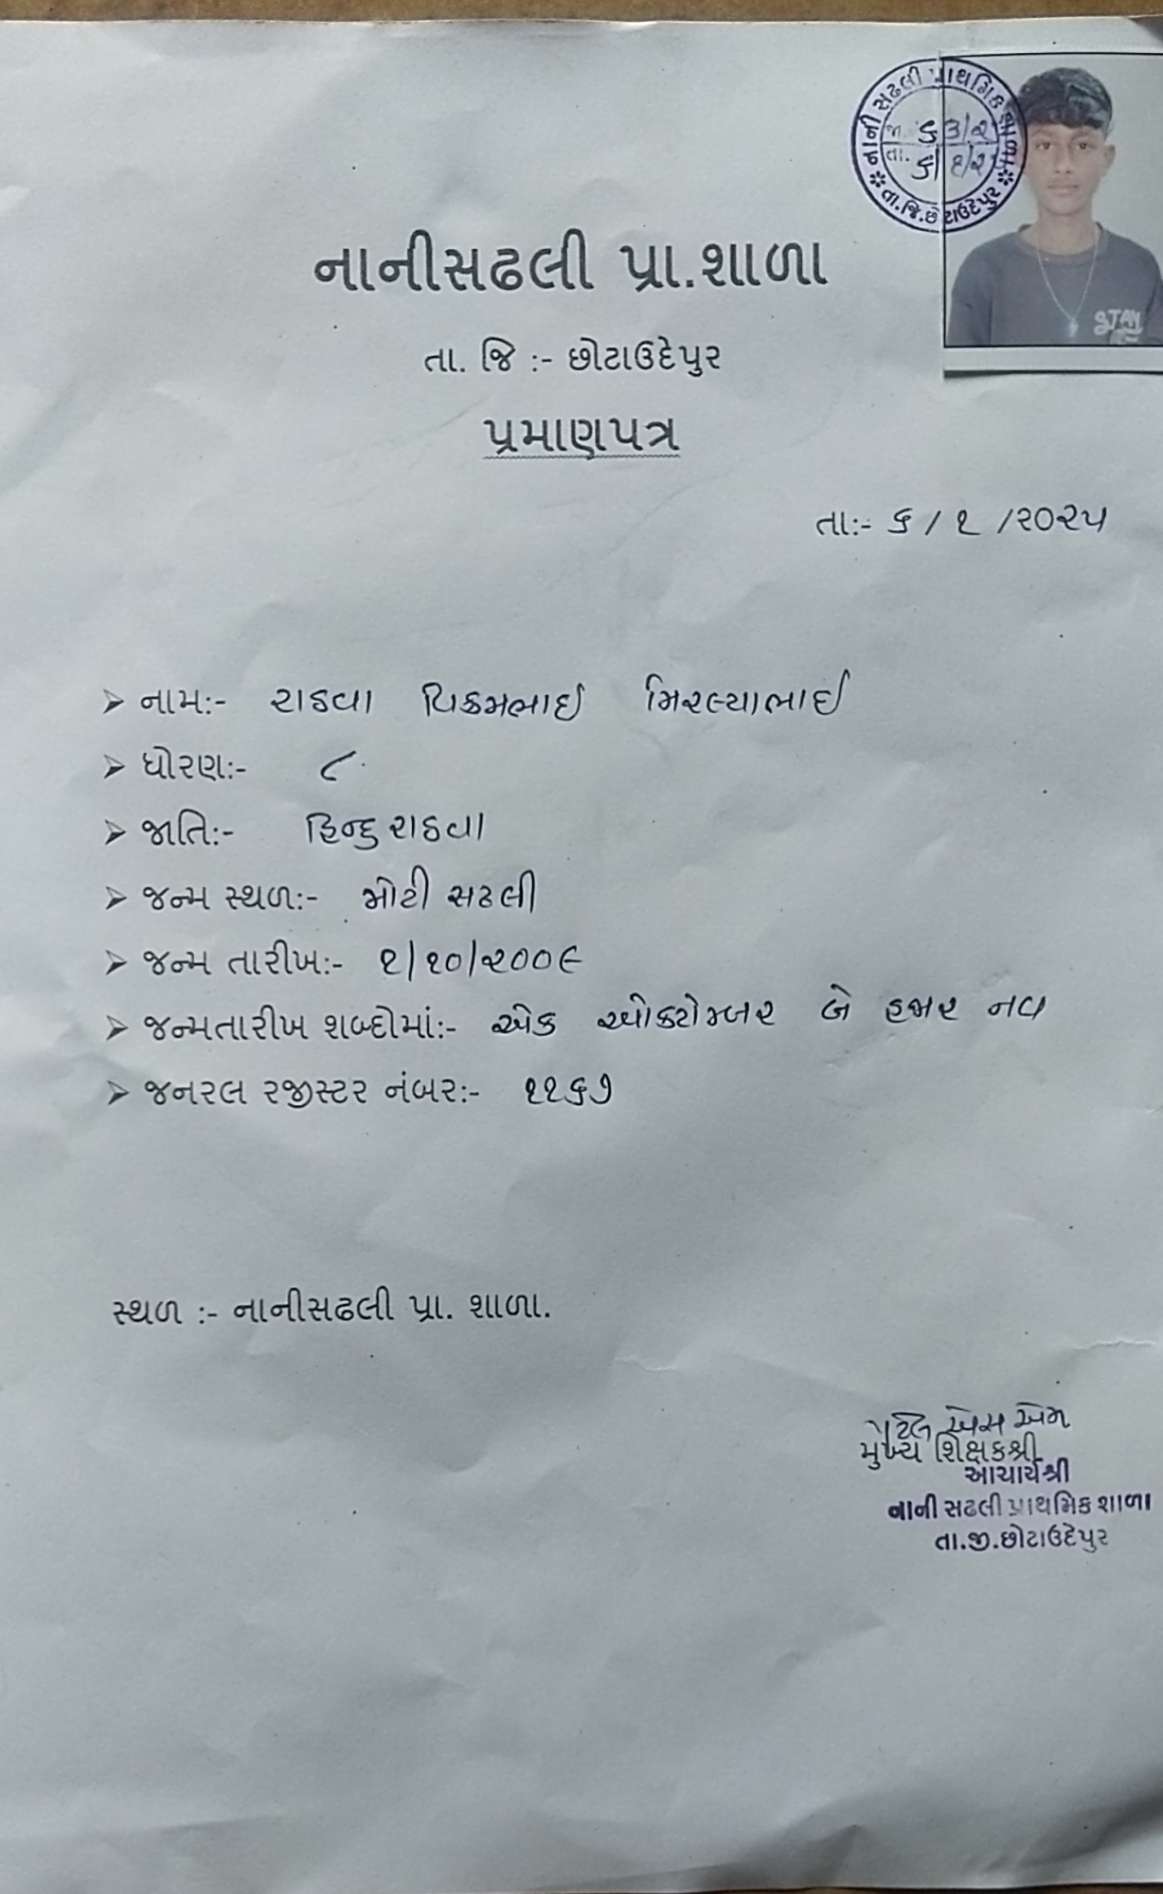 નાની સઢલી પ્રાથમિક શાળા
જા. ૬૩/૨
તા. ૬/૧/૨
તા.જિ.છોટાઉદેપુર
STAY
નાનીસઢલી પ્રા.શાળા
તા. જિ :- છોટાઉદેપુર
પ્રમાણપત્ર
તા:- ૬ / ૧ /૨૦૨૫
નામ:- રાઠવા વિક્રમભાઈ
ધોરણ:- ૮
જાતિ:- હિન્દુ રાઠવા
જન્મ સ્થળ:- મોટી સઢલી
જન્મ તારીખ:- ૧/૧૦/૨૦૦૯
જન્મતારીખ શબ્દોમાં:- એક ઓક્ટોમ્બર બે હજાર નવ
જનરલ રજીસ્ટર નંબર:- ૧૧૬૭
સ્થળ :- નાનીસઢલી પ્રા. શાળા.
પટેલ એસ એમ
મુખ્ય શિક્ષકશ્રી
આચાર્યશ્રી
નાની સઢલી પ્રાથમિક શાળા
તા.જી.છોટાઉદેપુર